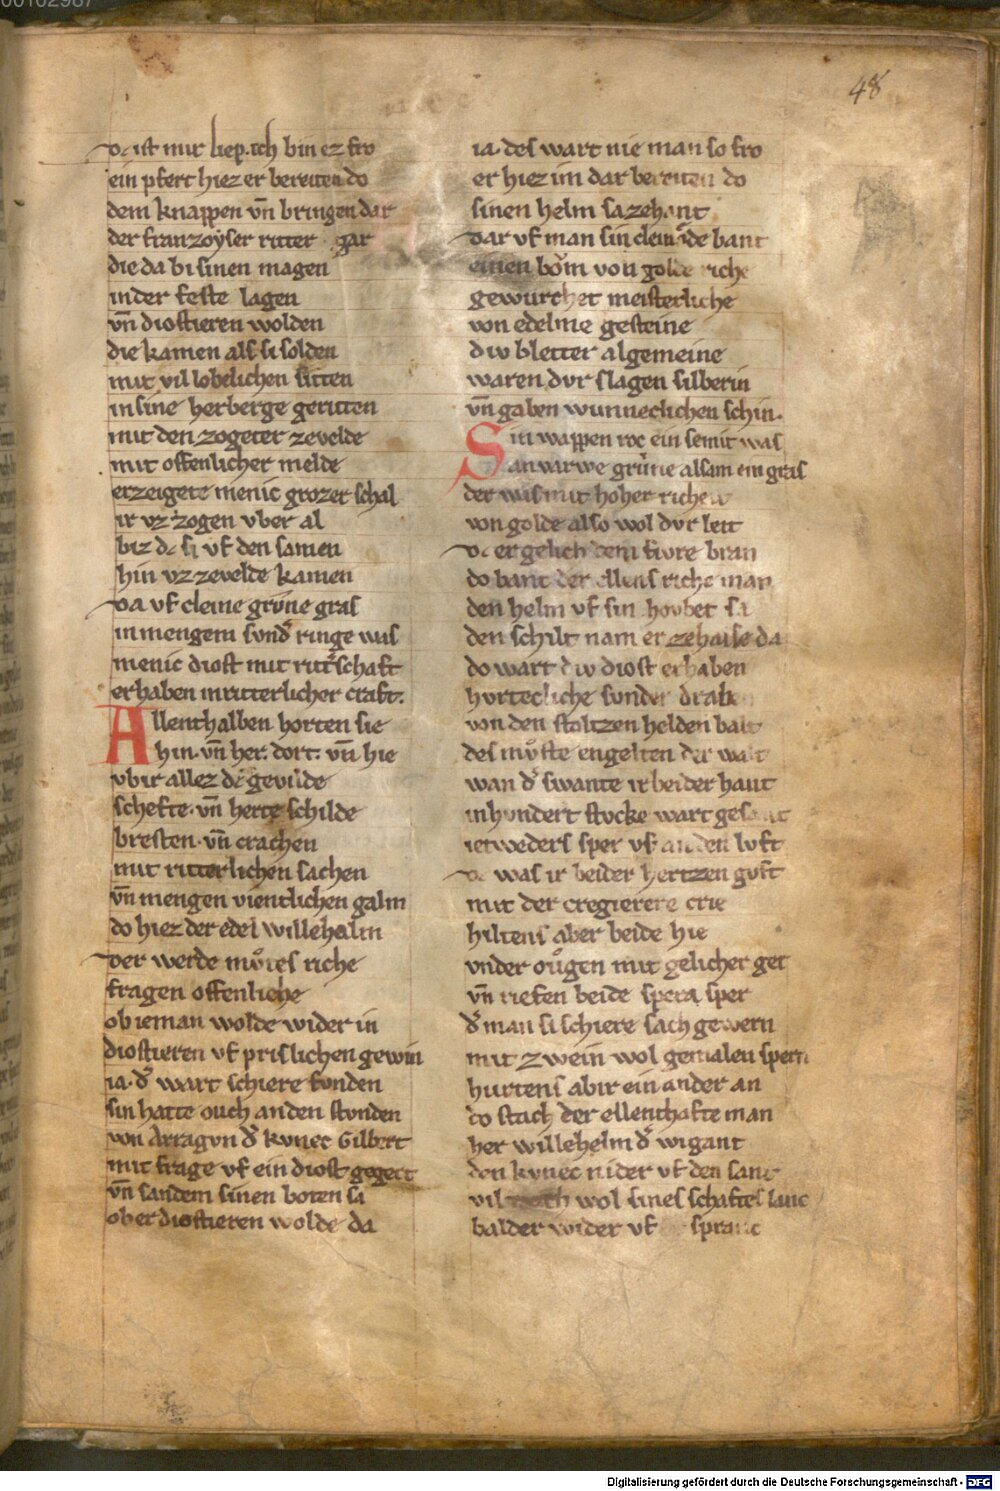 48
dc ist mir liep. ich bin ez fro
ein pfert hiez er bereiten do
dem knappen vn̄ bringen dar
der franzoyser ritter gar
die da bi sinen magen
in der feste lagen
vn̄ diostieren wolden
die kamen als si solden
mit vil lobelichen sitten
in sine herberge geritten
mit den zogeter zevelde
mit offenlicher melde
erzeigete menic grozer schal
ir vz zogen vber al
biz dc si vf den samen
hin vz zevelde kamen
da vf cleine grv̊ne gras
in mengem svnd͛ ringe was
menic diost mit ritt͛schaft
erhaben in ritterlicher craft.
Allenthalben horten sie
hin. vn̄ her. dort. vn̄ hie
vbir allez dc gevilde
schefte. vn̄ herte schilde
bresten. vn̄ crachen
mit ritterlichen sachen
vn̄ mengen vientlichen galm
do hiez der edel willehalm
der werde mv̊tes riche
fragen offenliche
ob ieman wolde wider in
diostieren vf prislichen gewin
ia. d͛ wart schiere fonden
sin hatte ouch an den stvnden
von Arragvn d͛ kvnec Gilbert
mit frage vf ein diost gegert
vn̄ sandem sinen boten sa
ober diostieren wolde da
ia. des wart nie man so fro
er hiez im dar bereiten do
sinen helm sa zehant
dar vf man sin cleinode bant
einen bo̊m von golde riche
gewurchet meisterliche
von edelme gesteine
div bletter algemeine
waren dvr slagen silberin
vn̄ gaben wunneclichen schin.
Sin wappen roc ein semit was
an varwe grv̊ne alsam ein gras
der was mit hoher
von golde also wol dvr leit
dc er gelich dem fivre bran
do bant der ellens riche man
den helm vf sin hovbet sa
den schilt nam er ze halse da
do wart div diost erhaben
hvrtecliche svnder
von den stoltzen helden balt
des mv̊ste engelten der walt
wan d͛ swante ir beider hant
in hvndert stvcke wart gesant
ietweders sper vf an den lvft
dc was ir beider hertzen gvft
mit der cregierere crie
hiltens aber beide hie
vnder oůgen mit gelicher ger
vn̄ riefen beide spera sper
d͛ man si schiere sach gewern
mit zwein wol gemalen spern
hurtens abir ein ander an
do stach der ellenthafte man
her willehelm d͛ wigant
den kvnec nider vf den sant
vil wol sines schaftes lanc
balder wider vf spranc
Digitalisierung gefördert durch die Deutsche Forschungsgemeinschaft - DFG